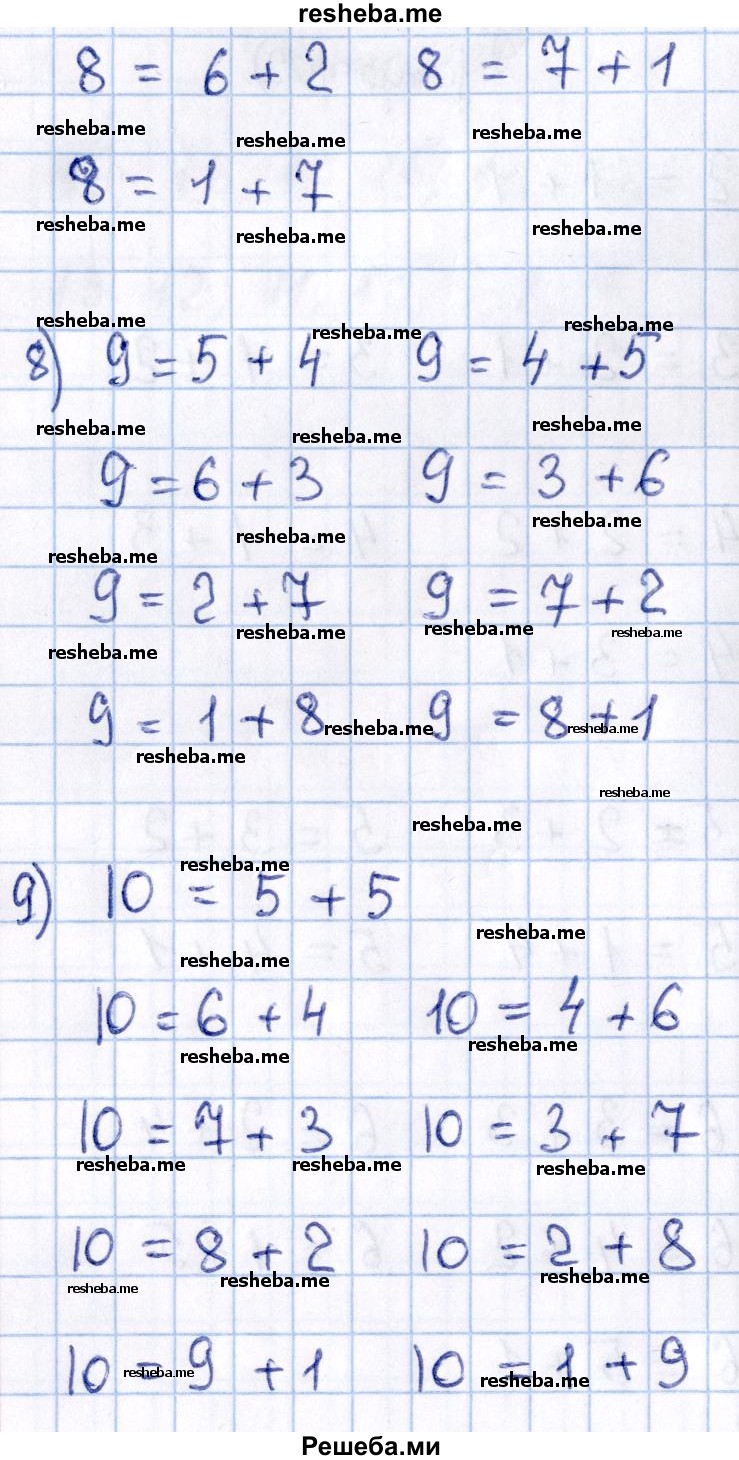 resheba.me
8 = 6 + 2 8 = 7 + 1
resheba.me resheba.me resheba.me
8 = 1 + 7
resheba.me resheba.me resheba.me
resheba.me resheba.me resheba.me
8) 9 = 5 + 4 9 = 4 + 5
resheba.me resheba.me resheba.me
9 = 6 + 3 9 = 3 + 6
resheba.me resheba.me resheba.me
9 = 2 + 7 9 = 7 + 2
resheba.me resheba.me resheba.me resheba.me
9 = 1 + 8 9 = 8 + 1
resheba.me resheba.me
resheba.me
resheba.me
resheba.me
resheba.me
9) 10 = 5 + 5
resheba.me
resheba.me
10 = 6 + 4 10 = 4 + 6
resheba.me resheba.me
10 = 7 + 3 10 = 3 + 7
resheba.me resheba.me resheba.me
10 = 8 + 2 10 = 2 + 8
resheba.me resheba.me resheba.me
10 = 9 + 1 10 = 1 + 9
resheba.me resheba.me
Решеба.ми